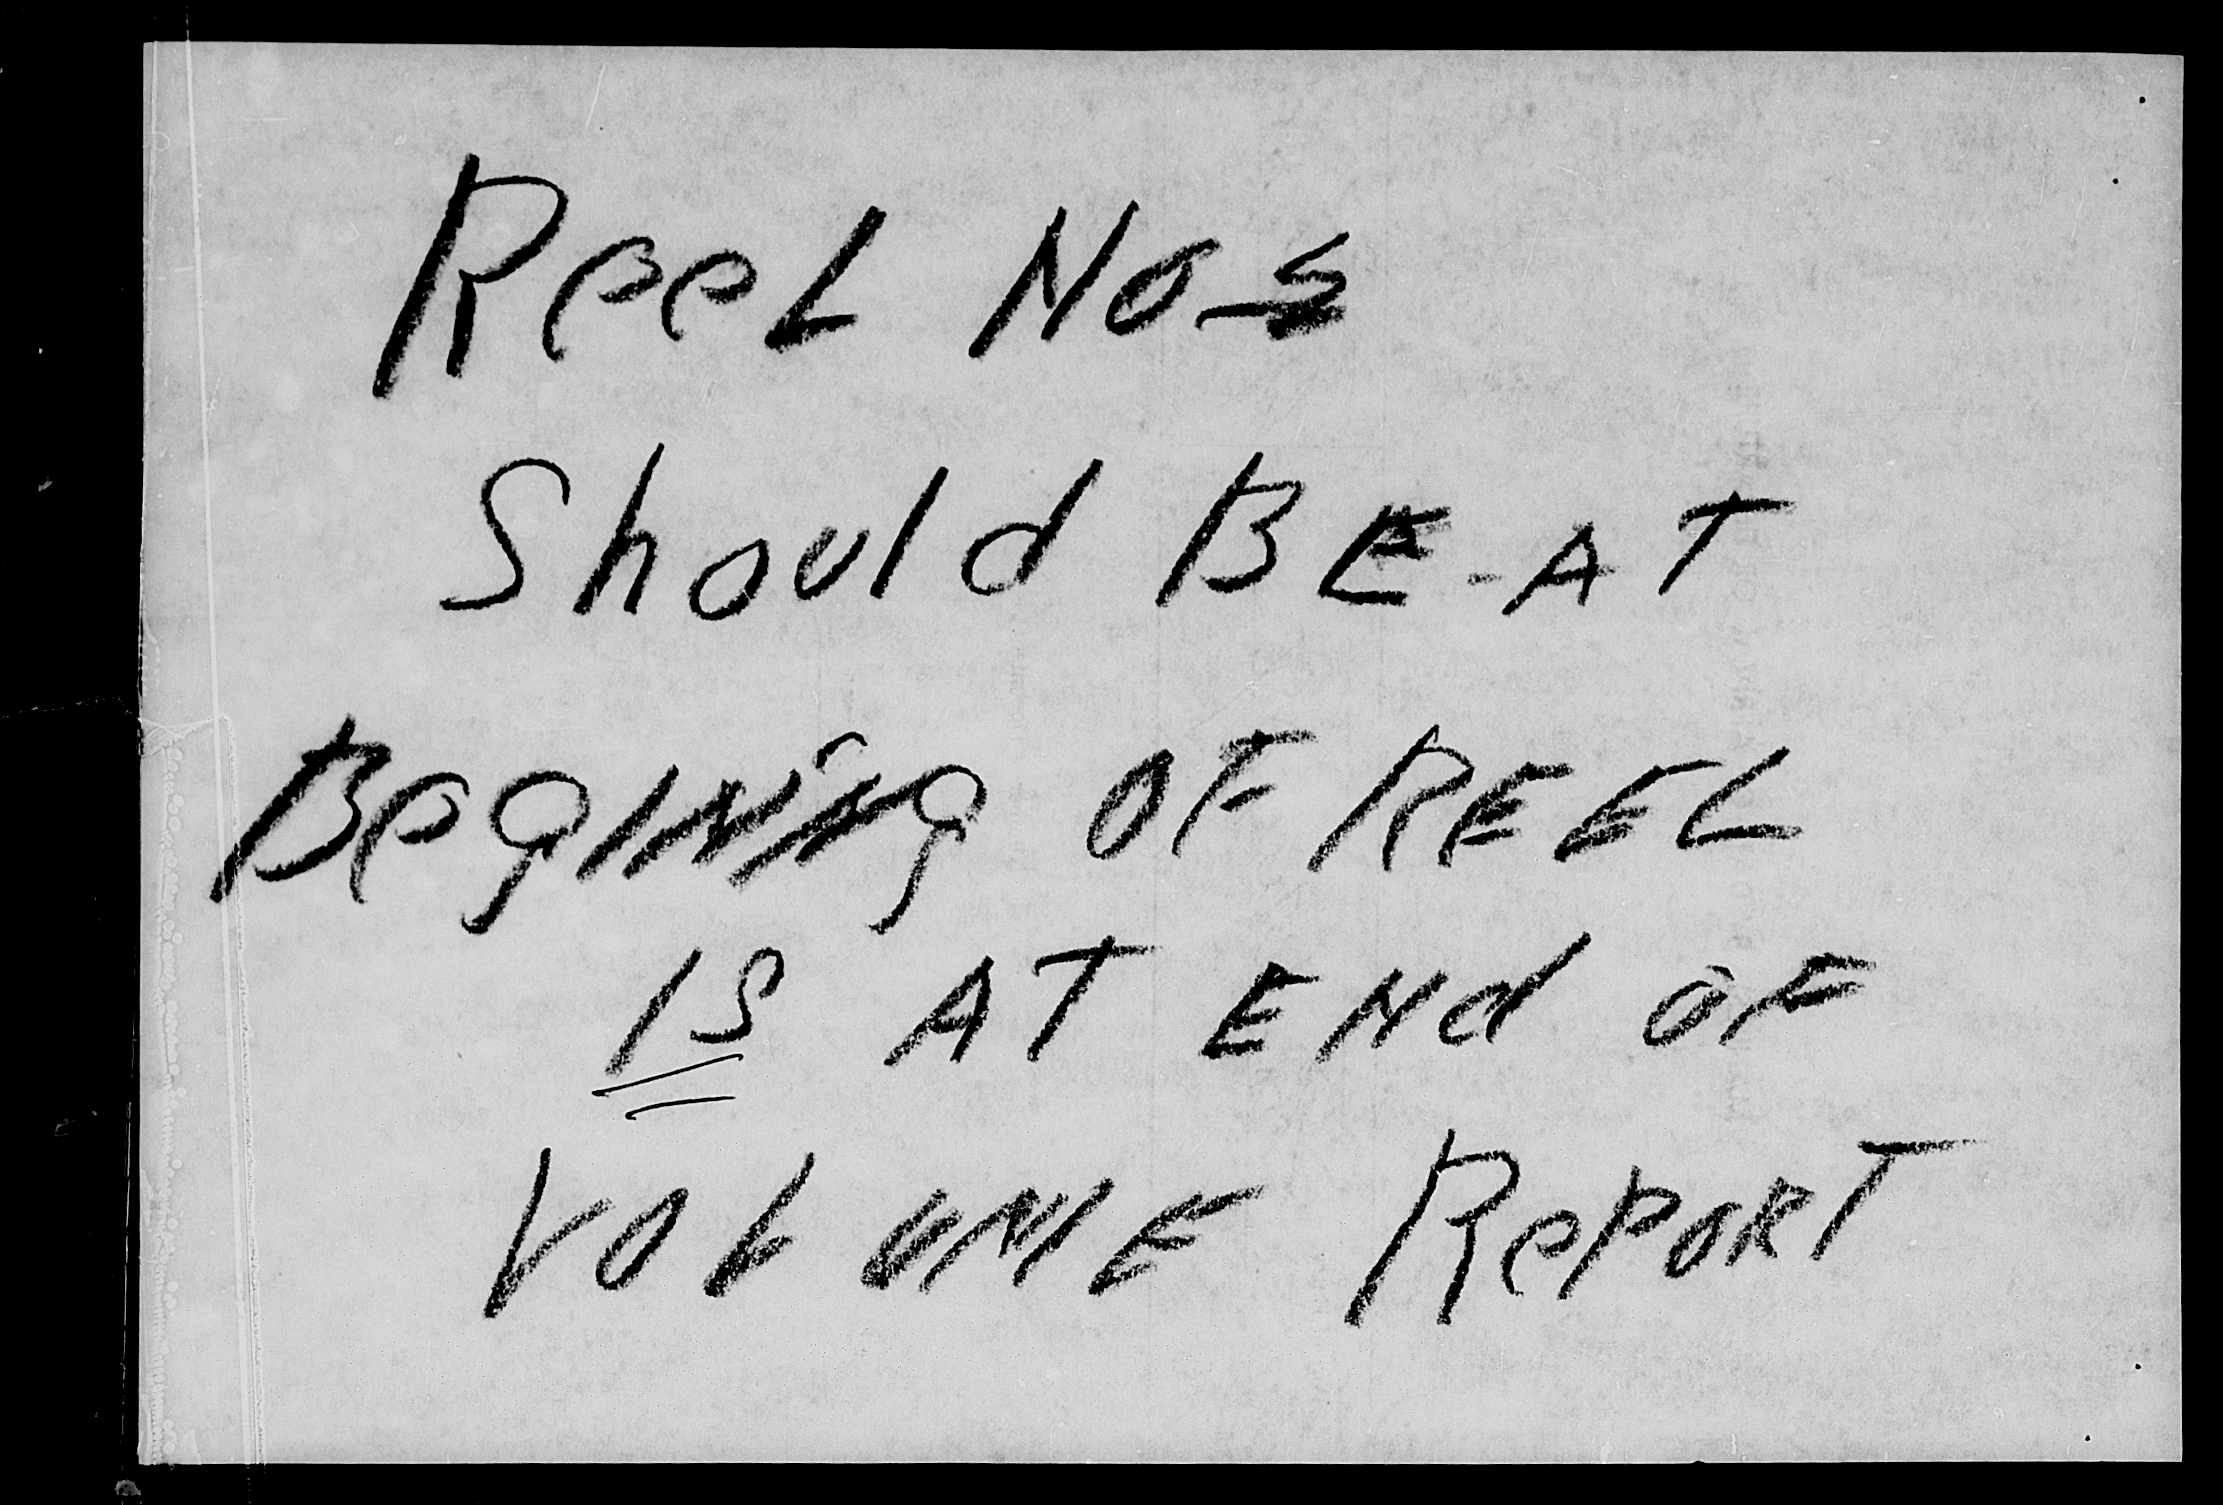 Reel No-s
Should BE-AT
Begining OF REEL
IS AT END OF
VOLUME RePORT